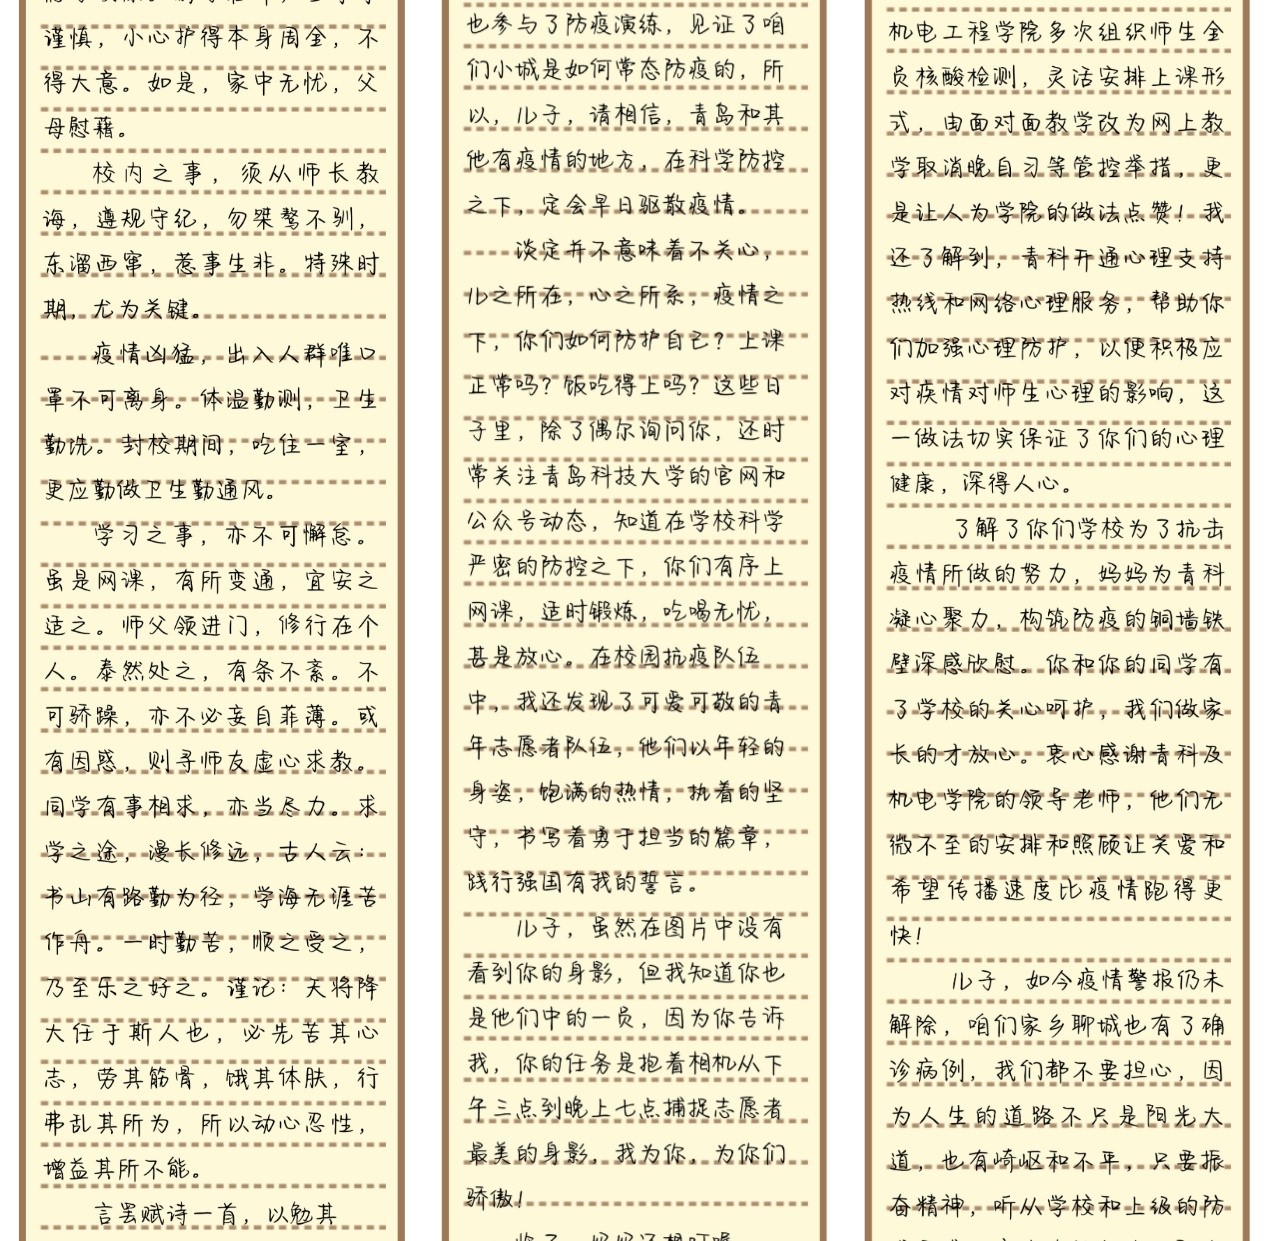 谨慎，小心护得本身周全，不
得大意。如是，家中无忧，父
母慰藉。
校内之事，须从师长教
海，遵规守纪，勿桀骜不驯，
东溜西窜，惹事生非。特殊时
期，尤为关键。
疫情凶猛，出入人群唯口
罩不可离身。体温勤测，卫生
勤洗。封校期间，吃住一室，
更应勤做卫生勤通风。
学习之事，亦不可懈怠。
虽是网课，有所变通，宜安之
适之。师父领进门，修行在个
人。泰然处之，有条不紊。不
可骄躁，亦不必妄自菲薄。或
有因惑，则寻师友虚心求教。
同学有事相求，亦当尽力。求
学之途，漫长修远，古人云：
书山有路勤为径，学海无涯苦
作舟。一时勤苦，顺之受之，
乃至乐之好之。谨记：天将降
大任于斯人也，必先苦其心
志，劳其筋骨，饿其体肤，行
弗乱其所为，所以动心忍性，
增益其所不能。
言罢赋诗一首，以勉其
也参与了防疫演练，见证了咱
们小城是如何常态防疫的，所
以，儿子，请相信，青岛和其
他有疫情的地方，在科学防控
之下，定会早日驱散疫情。
淡定并不意味着不关心，
儿之所在，心之所系，疫情之
下，你们如何防护自己？上课
正常吗？饭吃得上吗？这些日
子里，除了偶尔询问你，还时
常关注青岛科技大学的官网和
公众号动态，知道在学校科学
严密的防控之下，你们有序上
网课，适时锻炼，吃喝无忧，
甚是放心。在校园抗疫队伍
中，我还发现了可爱可敬的青
年志愿者队伍，他们以年轻的
身姿，饱满的热情，执着的坚
守，书写着勇于担当的篇章，
践行强国有我的誓言。
儿子，虽然在图片中没有
看到你的身影，但我知道你也
是他们中的一员，因为你告诉
我，你的任务是抱着相机从下
午三点到晚上七点捕捉志愿者
最美的身影，我为你，为你们
骄傲！
机电工程学院多次组织师生全
员核酸检测，灵活安排上课形
式，由面对面教学改为网上教
学取消晚自习等管控举措，更
是让人为学院的做法点赞！我
还了解到，青科开通心理支持
热线和网络心理服务，帮助你
们加强心理防护，以便积极应
对疫情对师生心理的影响，这
一做法切实保证了你们的心理
健康，深得人心。
了解了你们学校为了抗击
疫情所做的努力，妈妈为青科
凝心聚力，构筑防疫的铜墙铁
壁深感欣慰。你和你的同学有
了学校的关心呵护，我们做家
长的才放心。衷心感谢青科及
机电学院的领导老师，他们无
微不至的安排和照顾让关爱和
希望传播速度比疫情跑得更
快！
儿子，如今疫情警报仍未
解除，咱们家乡聊城也有了确
诊病例，我们都不要担心，因
为人生的道路不只是阳光大
道，也有崎岖和不平，只要振
奋精神，听从学校和上级的防